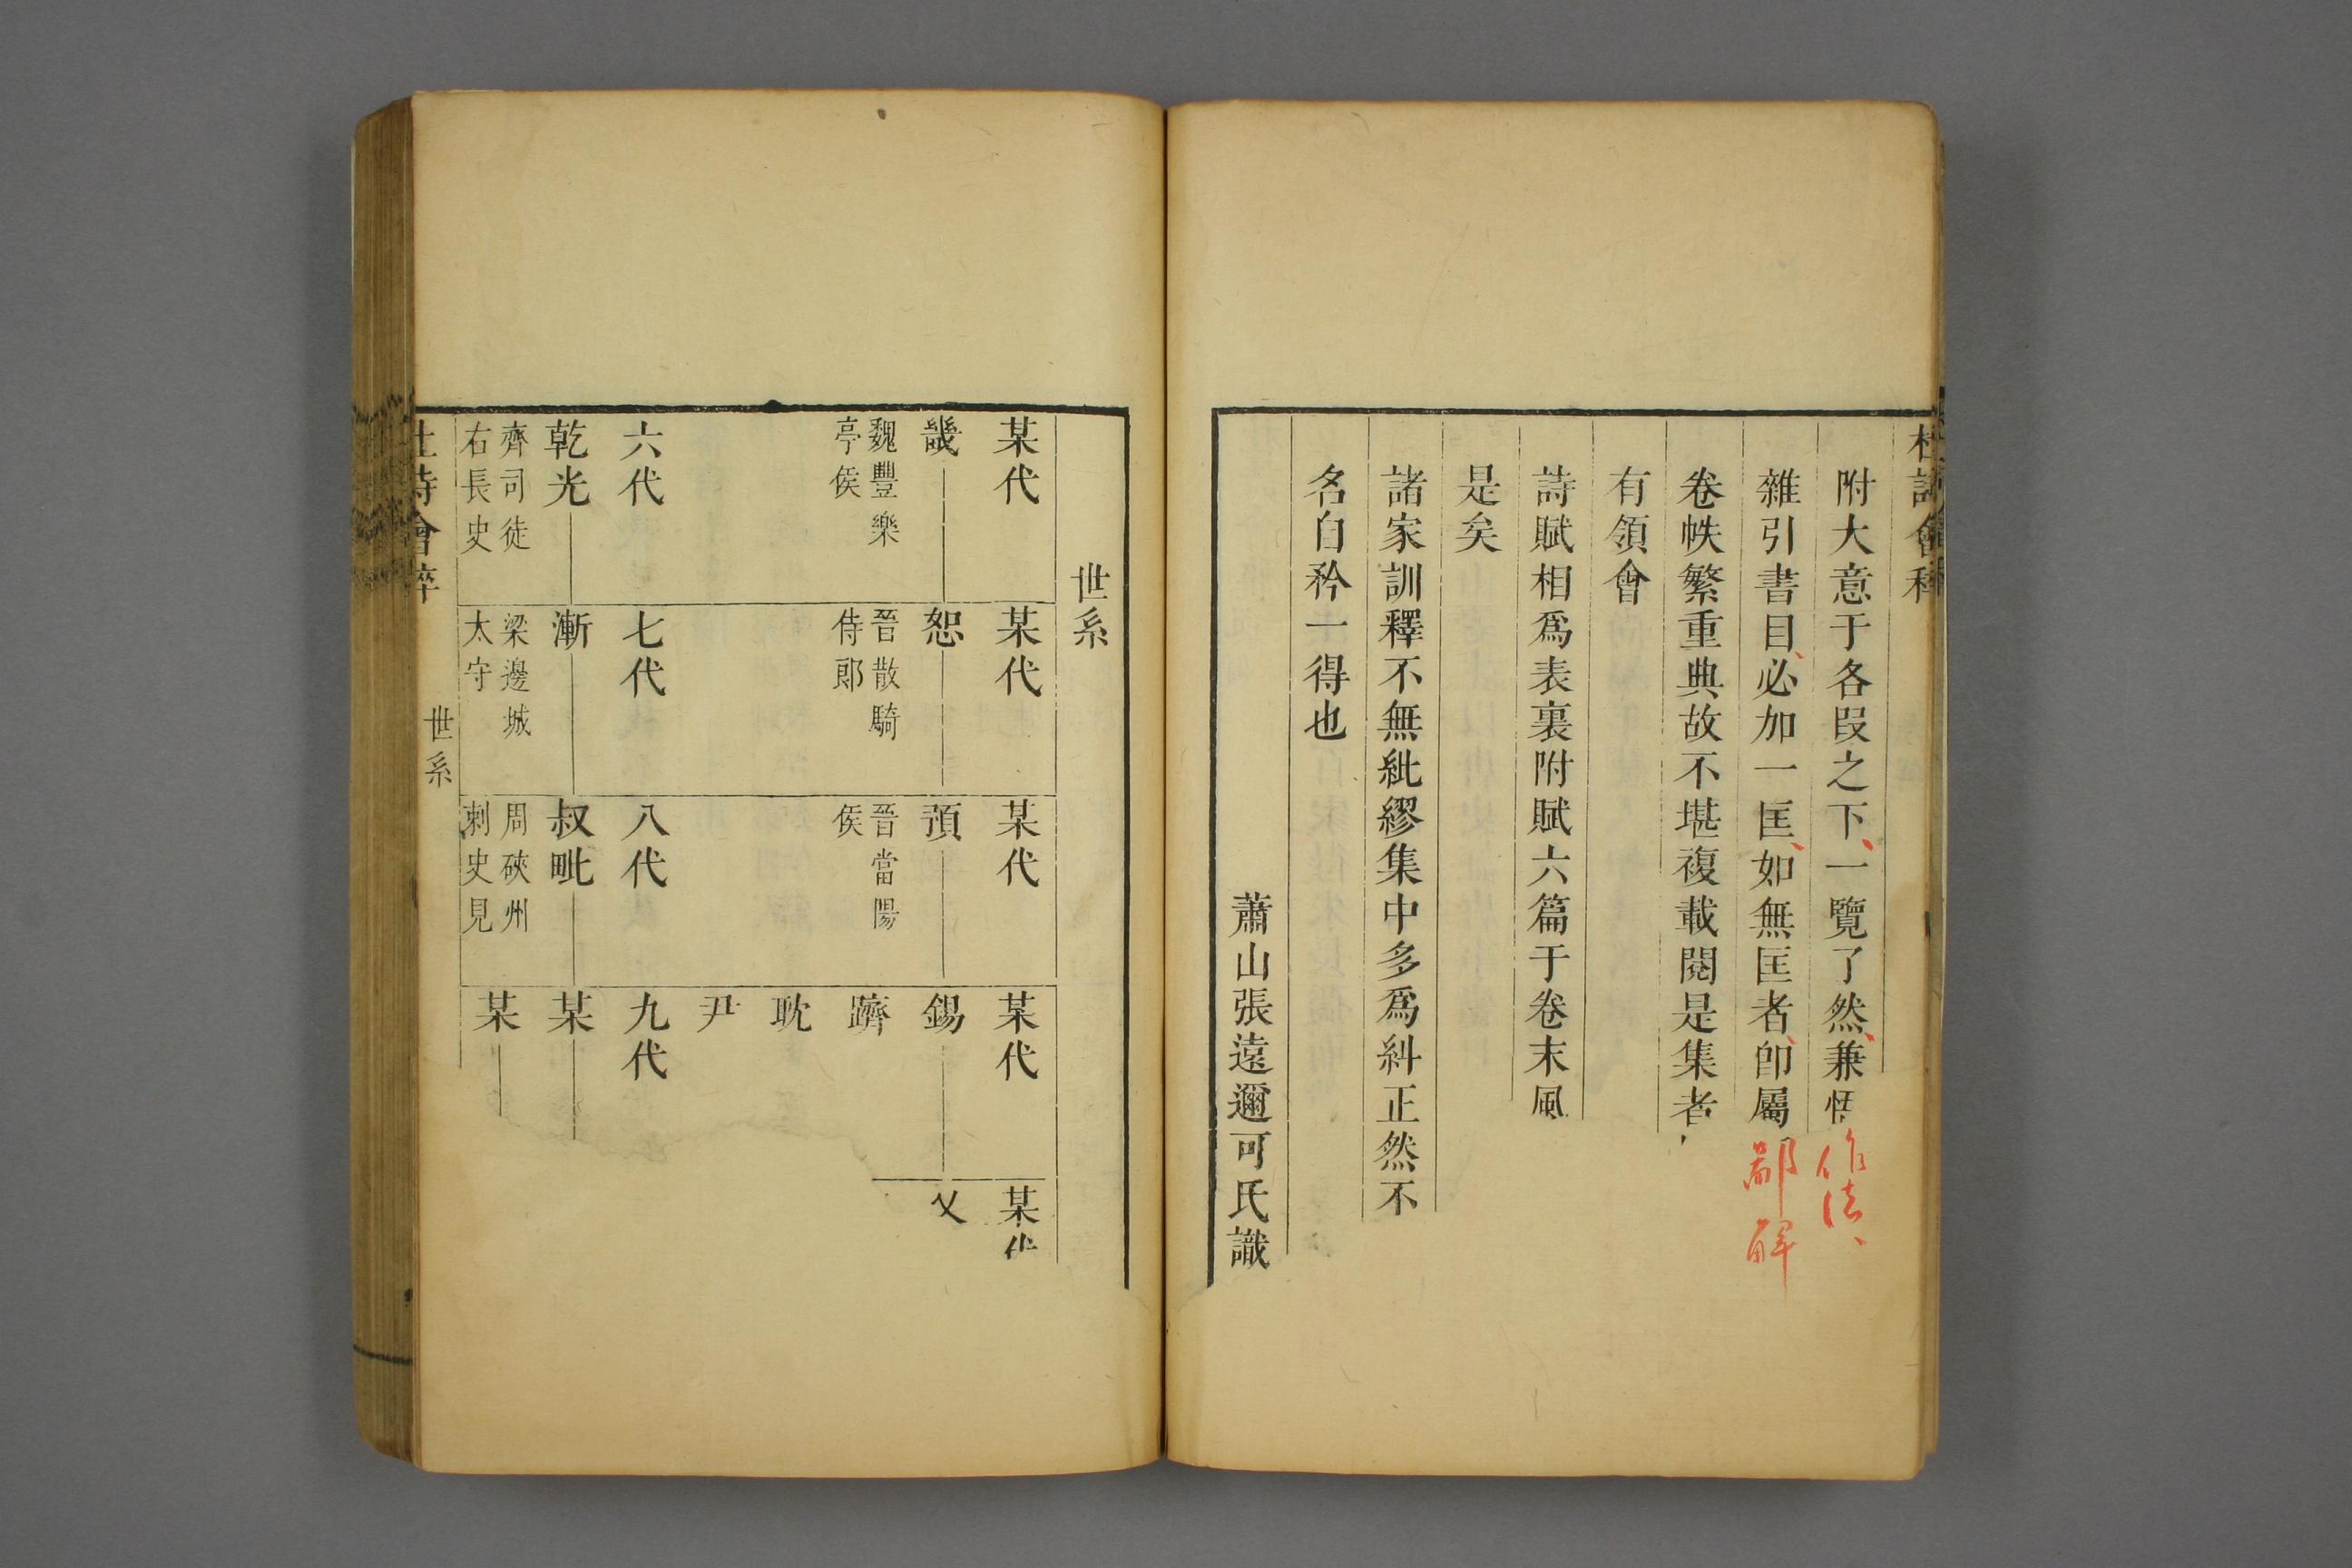 杜詩會稡
附大意于各段之下、一覽了然、兼悟作法、
雜引書目、必加一匡、如無匡者、卽屬鄙解
卷帙繁重典故不堪複載閱是集者
有領會
詩賦相爲表裏附賦六篇于卷末風
是矣
諸家訓釋不無紕繆集中多爲糾正然不
名自矜一得也
蕭山張遠邇可氏識
世系
某代 某代 某代 某代 某代
畿 恕 預 錫 乂
魏豐樂亭侯 晉散騎侍郎 晉當陽侯 躋
耽
尹
六代 七代 八代 九代
乾光 漸 叔毗 某
齊司徒右長史 梁邊城太守 周硤州刺史見 某
杜詩會稡 世系